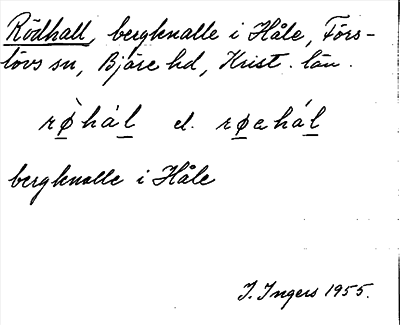 Rödhall, bergknalle i Håle, Förs-
lövs sn, Bjäre hd, Krist. län.
rø̀hál el. røahál
bergknalle i Håle
I. Ingers 1955.